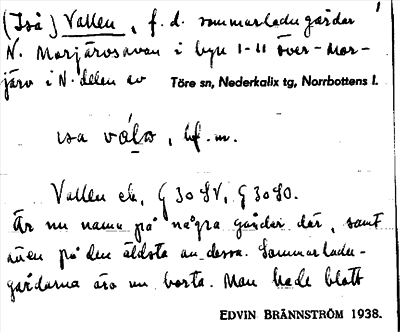 (Iså) Vallen, f. d. sommarladugårdar i
N. Morjärvsavan i byn 1-11 Över-Mor-
järv i N. delen av Töre sn, Nederkalix tg, Norrbottens l.
bf. m.
Vallen ek, G 30 SV, G 30 SO.
Är nu namn på några gårdar där, samt
även på den äldsta av dessa. Sommarladu-
gårdarna äro nu borta. Man hade blott
EDVIN BRÄNNSTRÖM 1938.